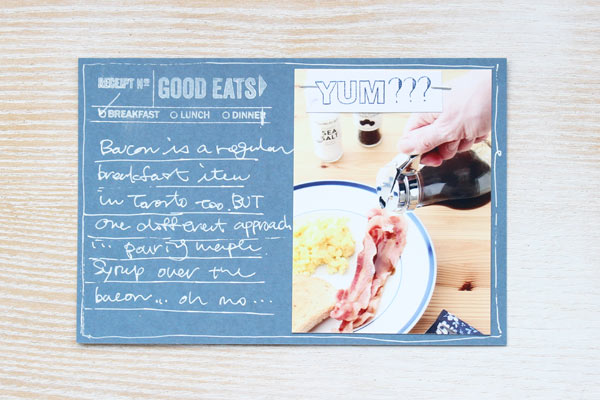 RECEIPT Nº
GOOD EATS
BREAKFAST
LUNCH
DINNER
Bacon is a regular
breakfast item
in Toronto too. BUT
one different approach
... pouring maple
Syrup over the
bacon... oh no...
YUM???
SEA
SALT